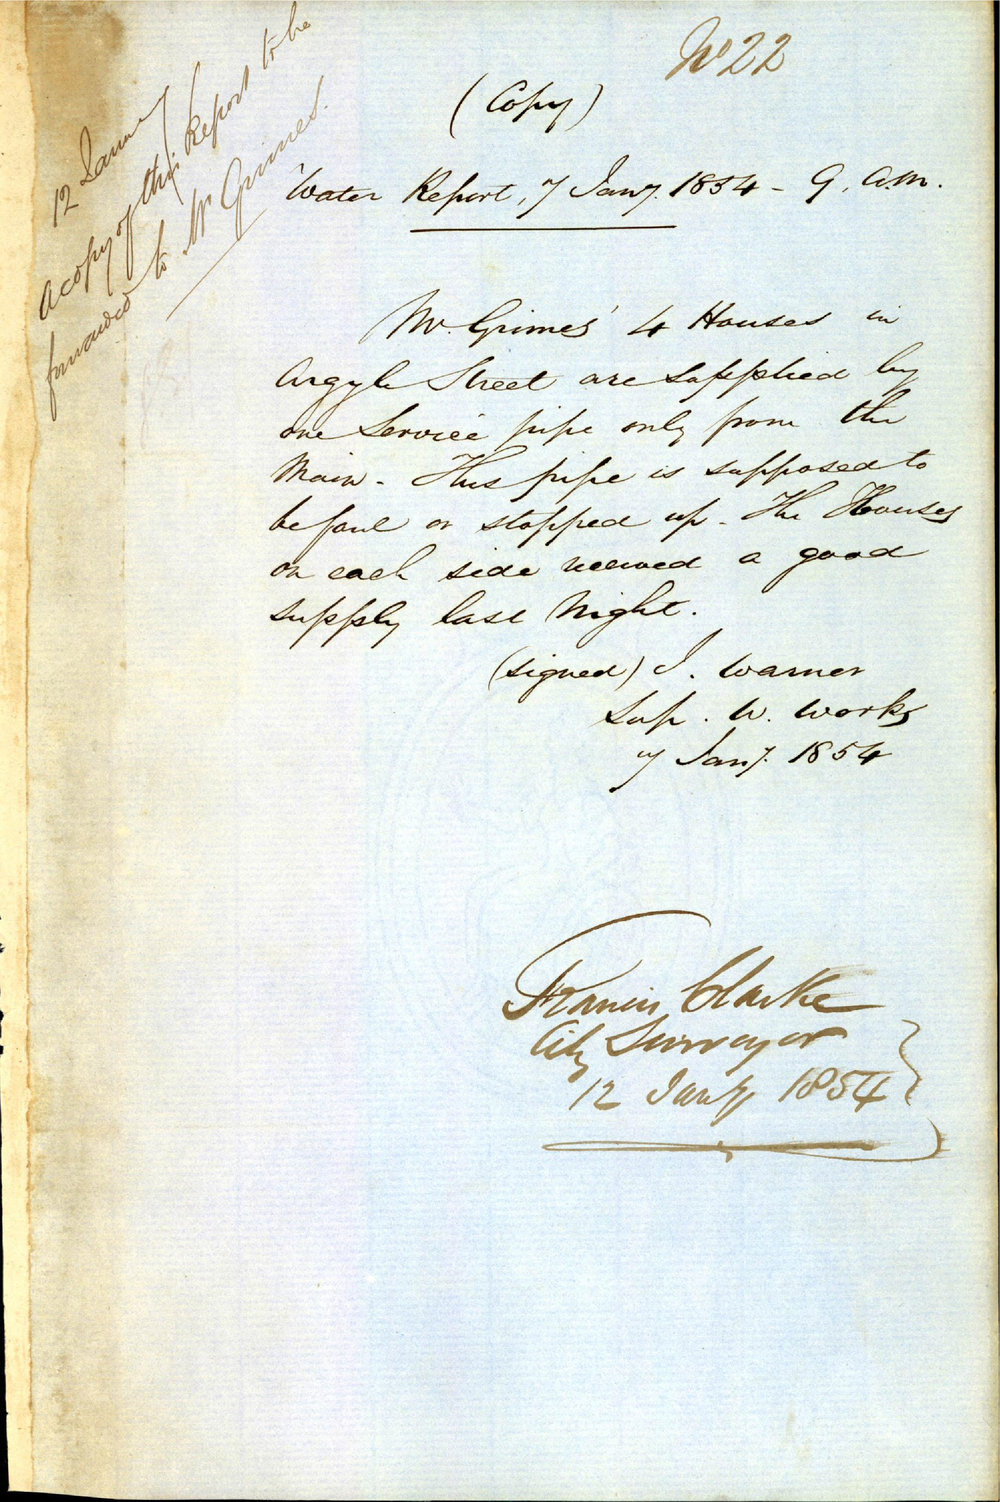 No 22
(Copy)
12 January
A copy of this Report to be
forwarded to Mr Grimes.
Water Report, 7 Jany. 1854 - 9. a.m.
Mr. Grimes' 4 Houses in
Argyle Street are supplied by
one Service pipe only from the
Main - This pipe is supposed to
be foul or stopped up - The Houses
on each side received a good
supply last Night.
(signed) J. Warner
Sup. W. Works
7 Jany. 1854
Francis Clarke
City Surveyor
12 Jany 1854